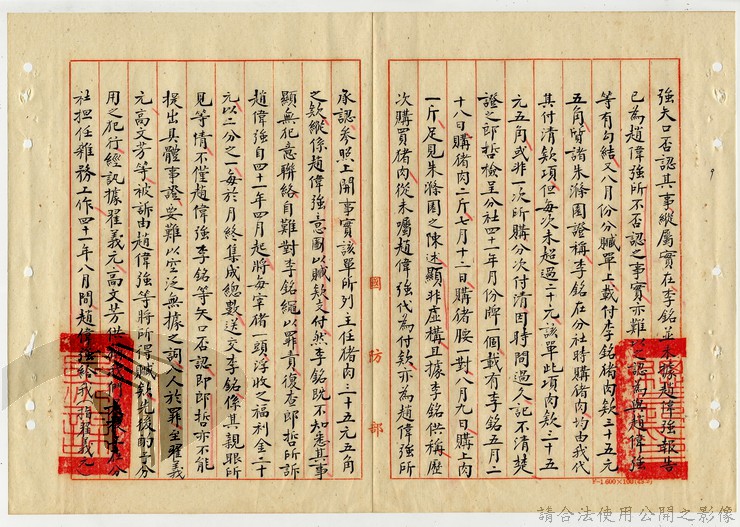 強矢口否認其事縱屬實在李銘並未據趙偉強報告
已為趙偉強所不否認之事實亦難以之認為與趙偉強
等有勾結又八月份分贓單上載付李銘豬肉欵三十五元
五角質諸朱滌園證稱李銘在分社時購豬肉均由我代
其付清欵項但每次未超過二十元該單此項肉欵三十五
元五角或非一次所購分次付清因時間過久記不清楚
證之郎哲檢呈分社四十一年月份牌一個載有李銘五月二
十八日購豬肉二斤七月十二日購豬腰一對八月九日購上肉
一斤足見朱滌園之陳述顯非虛構且據李銘供稱歷
次購買豬肉從未囑趙偉強代為付款亦為趙偉強所
國防部
承認參照上開事實該單所列主任豬肉三十五元五角
之欵縱係趙偉強意圖以贓欵支付然李銘既不知悉其事
顯無犯意聯絡自難對李銘繩以罪責復查郎哲所訴
趙偉強自四十一年四月起將每宰豬一頭浮收之福利金二十
元以二分之一每於月終集成總數送交李銘係其親眼所
見等情不僅趙偉強李銘等矢口否認即郎哲亦不能
提出具體事證要難以空泛無據之詞入人於罪至翟義
元高文芳等被訴由趙偉強等將所得贓款先後酌予分
用之犯行經訊據翟義元高文芳供
社担任雜務工作四十一年八月間趙偉強給我(指翟義元)
F-1 600×100(42-2)
請合法使用公開之影像